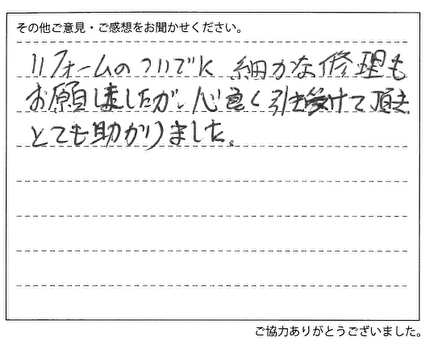 その他ご意見・ご感想をお聞かせください。
リフォームのついでに 細かな修理も
お願しましたが、心良く引き受けて頂き
とても助かりました。
ご協力ありがとうございました。